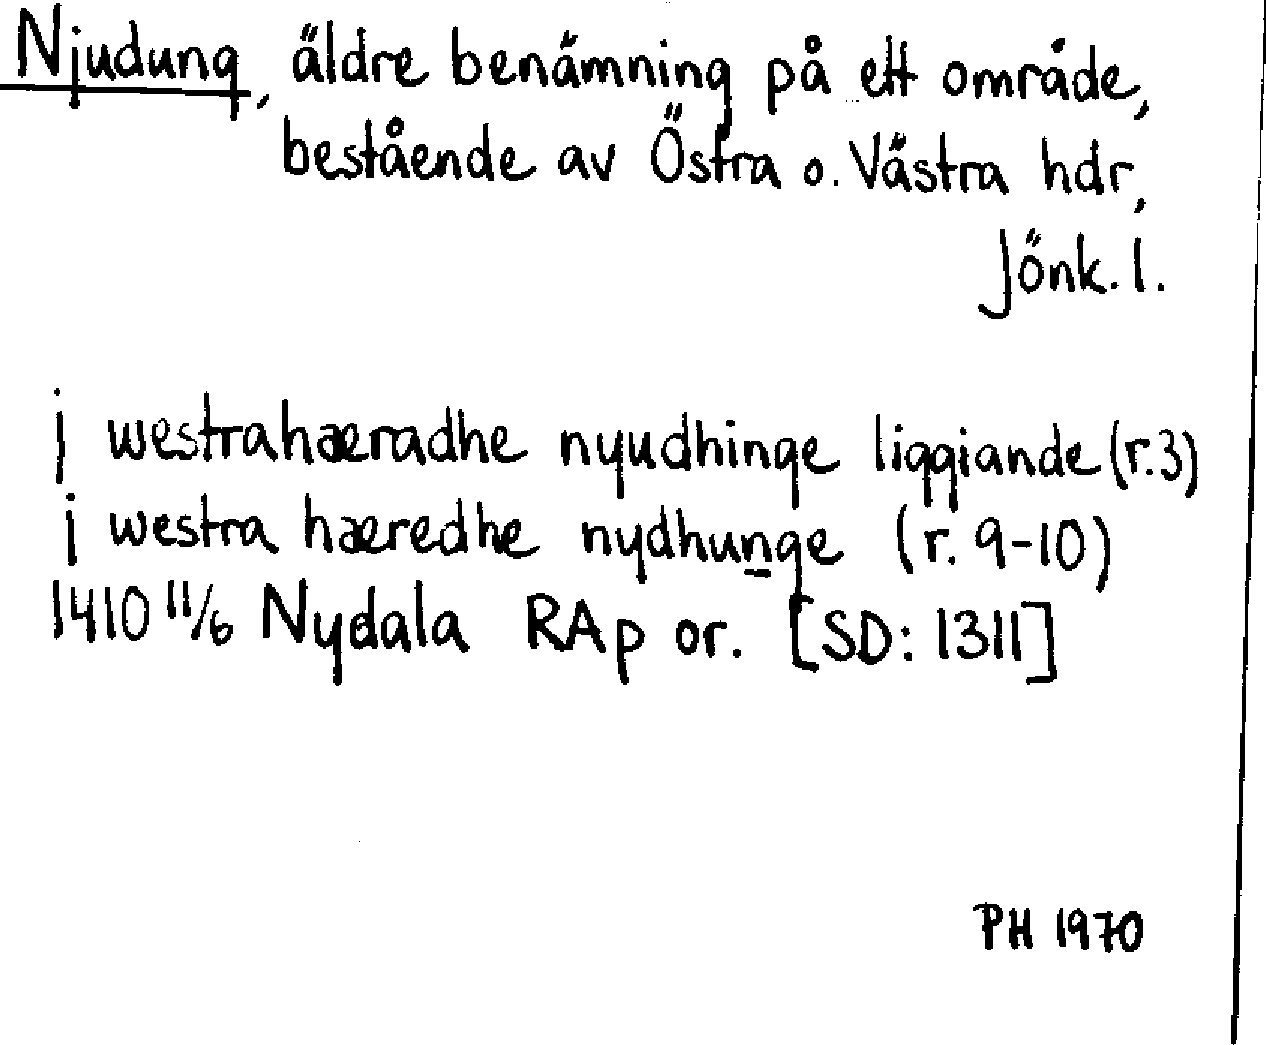 Njudung, äldre benämning på ett område,
bestående av Östra o. Västra hdr,
Jönk. l.
j westrahæradhe nyudhinge liggiande (r.3)
j westra hæredhe nydhunge (r. 9-10)
1410 11/6 Nydala RAp or. [SD: 1311]
PH 1970